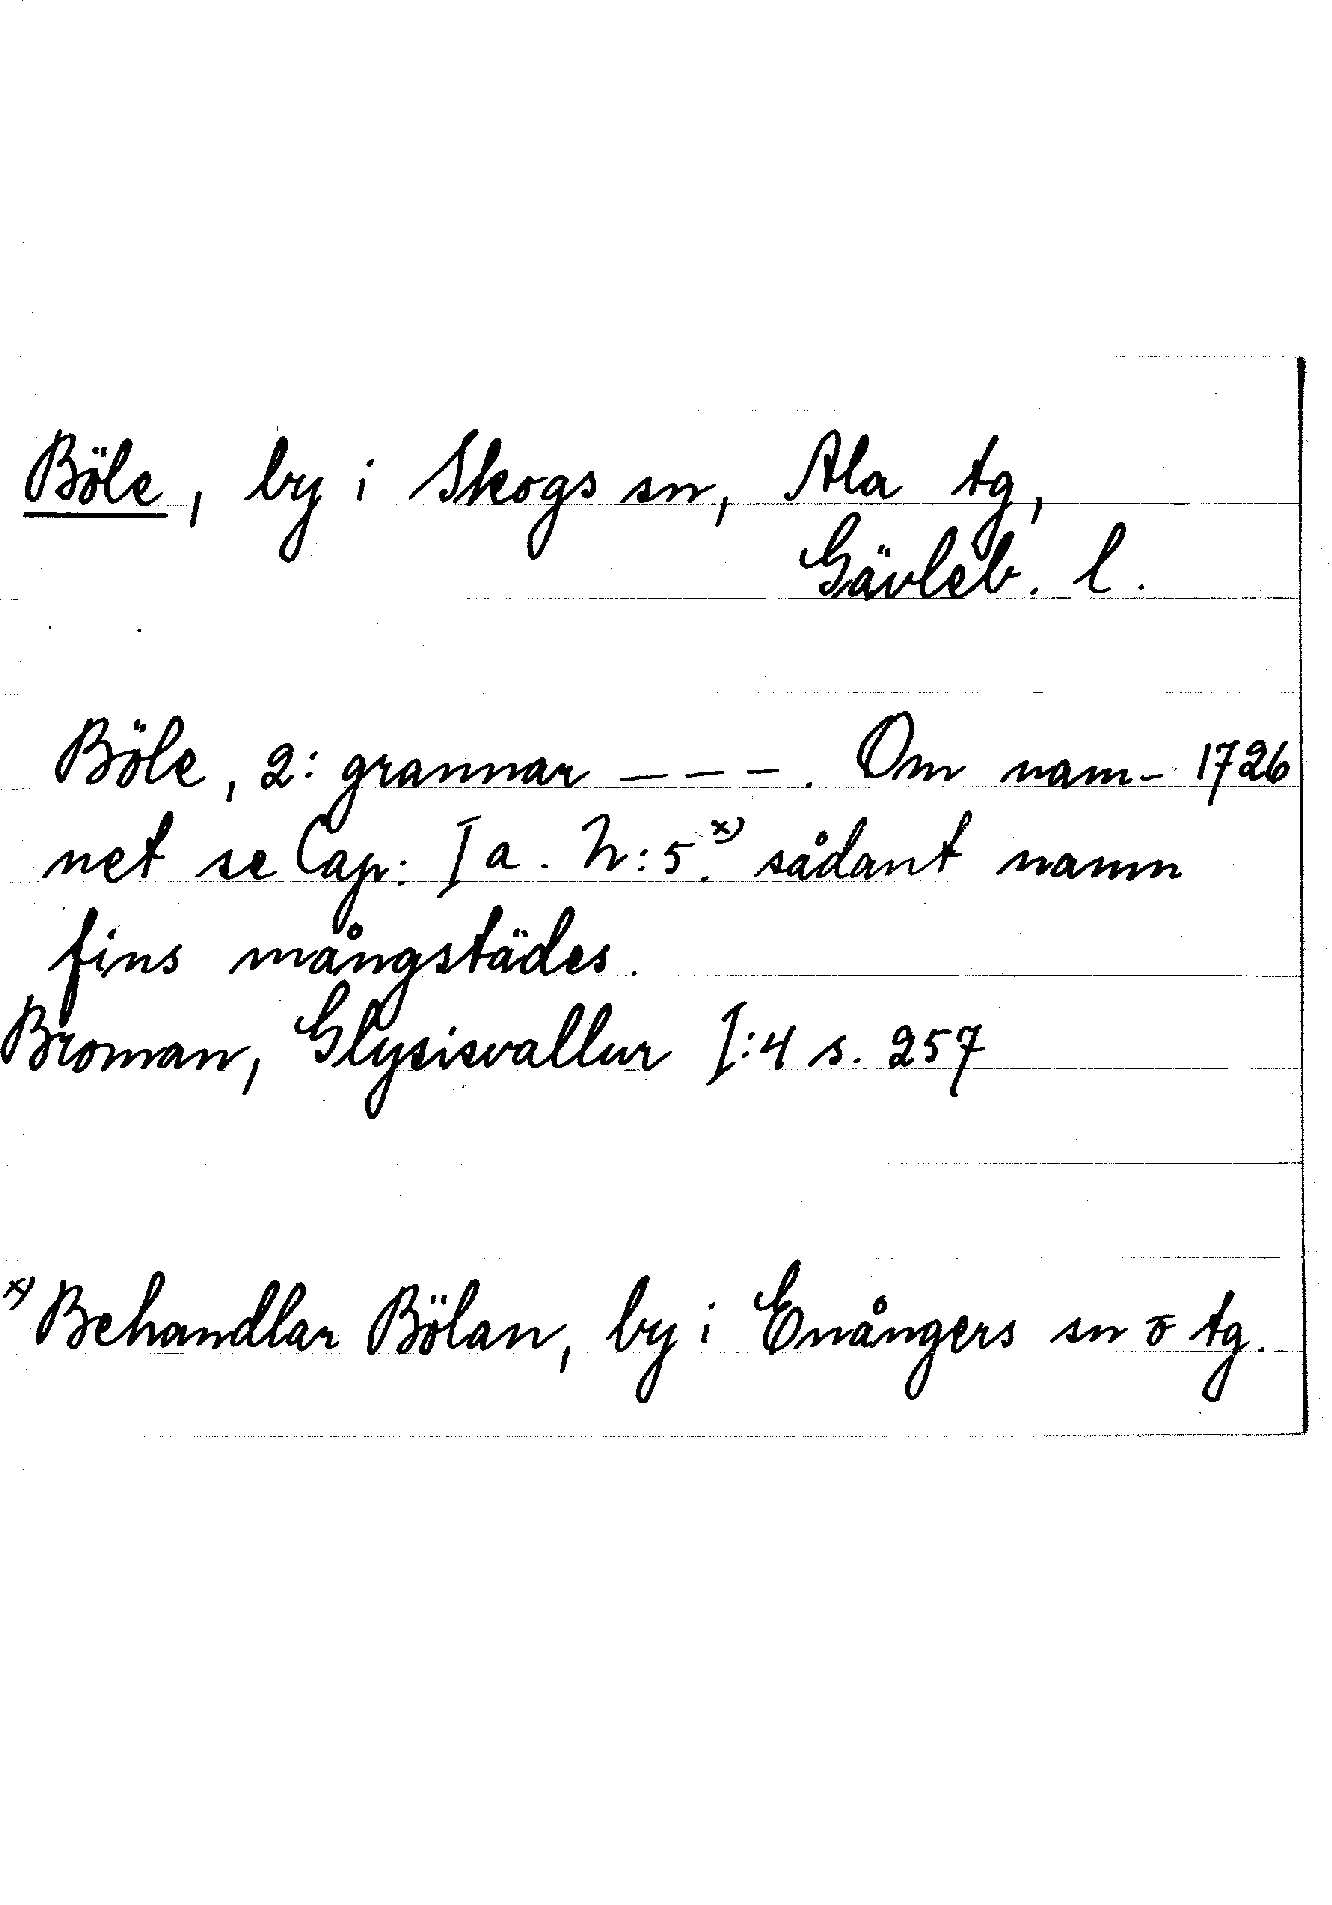 Böle, by i Skogs sn, Ala tg,
Gävleb. l.
Böle, 2: grannar – – – –. Om nam- 1726
net se Cap: I a. N:5.x) sådant namn
fins mångstädes.
Broman, Glysisvallur I:4 s. 257
x) Behandlar Bölan, by i Enångers sn o tg.